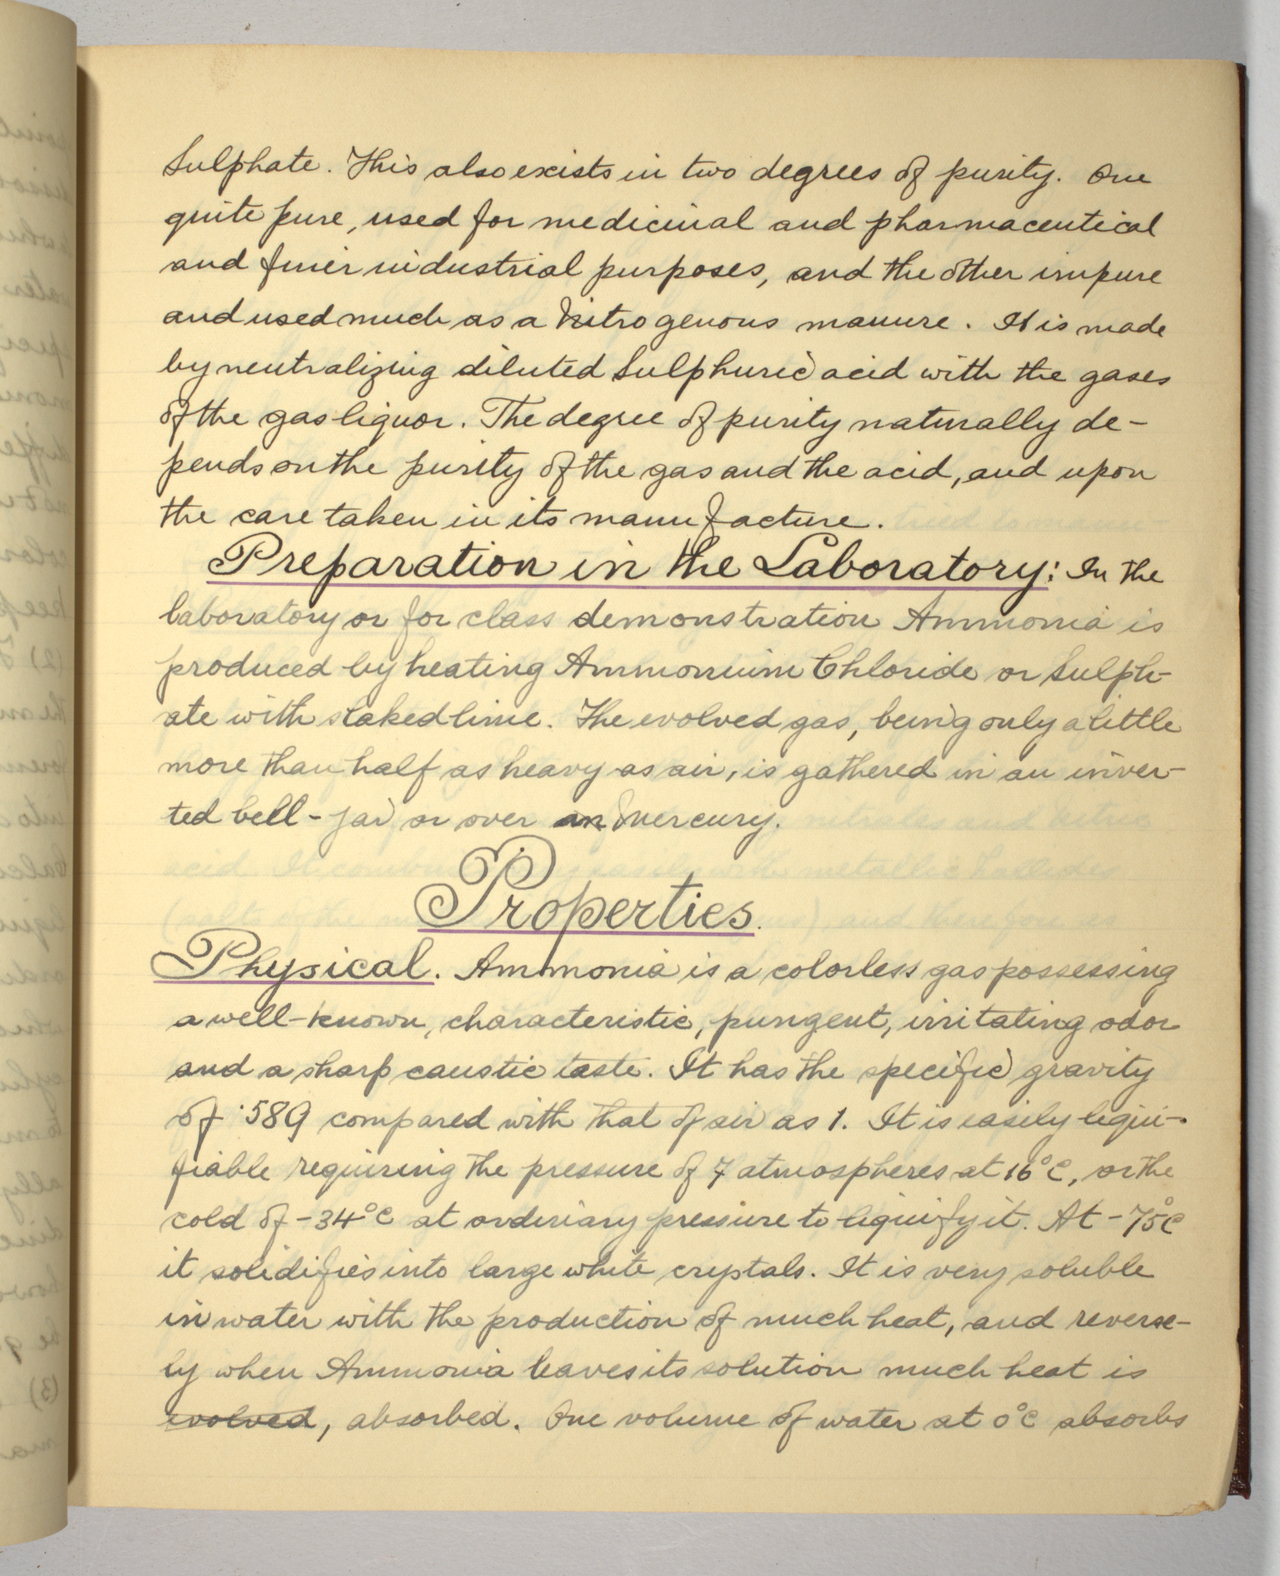 Sulphate. This also exists in two degrees of purity. One
quite pure, used for medicinal and pharmaceutical
and finer industrial purposes, and the other impure
and used much as a Nitrogenous manure. It is made
by neutralizing diluted Sulphuric acid with the gases
of the gas liquor. The degree of purity naturally de-
pends on the purity of the gas and the acid, and upon
the care taken in its manufacture.
Preparation in the Laboratory: In the
laboratory or for class demonstration Ammonia is
produced by heating Ammonium Chloride or Sulph-
ate with slaked lime. The evolved gas, being only a little
more than half as heavy as air, is gathered in an inver-
ted bell-jar or over an Mercury.
Properties.
Physical. Ammonia is a colorless gas possessing
a well-known, characteristic, pungent, irritating odor
and a sharp caustic taste. It has the specific gravity
of .589 compared with that of air as 1. It is easily liqui-
fiable requiring the pressure of 7 atmospheres at 16°C, or the
cold of -34°C at ordinary pressure to liquify it. At -75°C
it solidifies into large white crystals. It is very soluble
in water with the production of much heat, and reverse-
ly when Ammonia leaves its solution much heat is
evolved, absorbed. One volume of water at 0°C absorbs